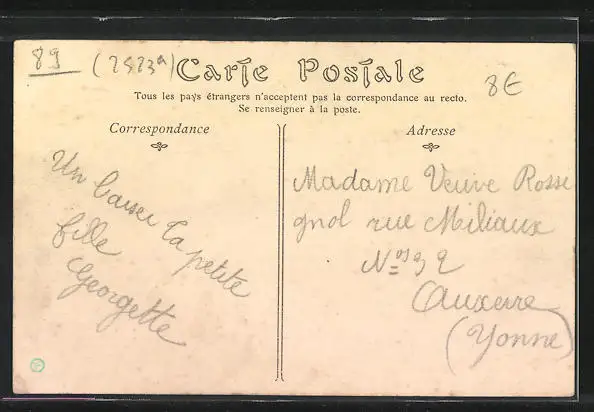 89 (2523a)
Carte Postale
8€
Tous les pays étrangers n'acceptent pas la correspondance au recto.
Se renseigner à la poste.
Correspondance
Un baiser ta petite
fille
Georgette
Adresse
Madame Veuve Rossi
gnol rue Miliaux
Nos 32
Auxerre
(Yonne)